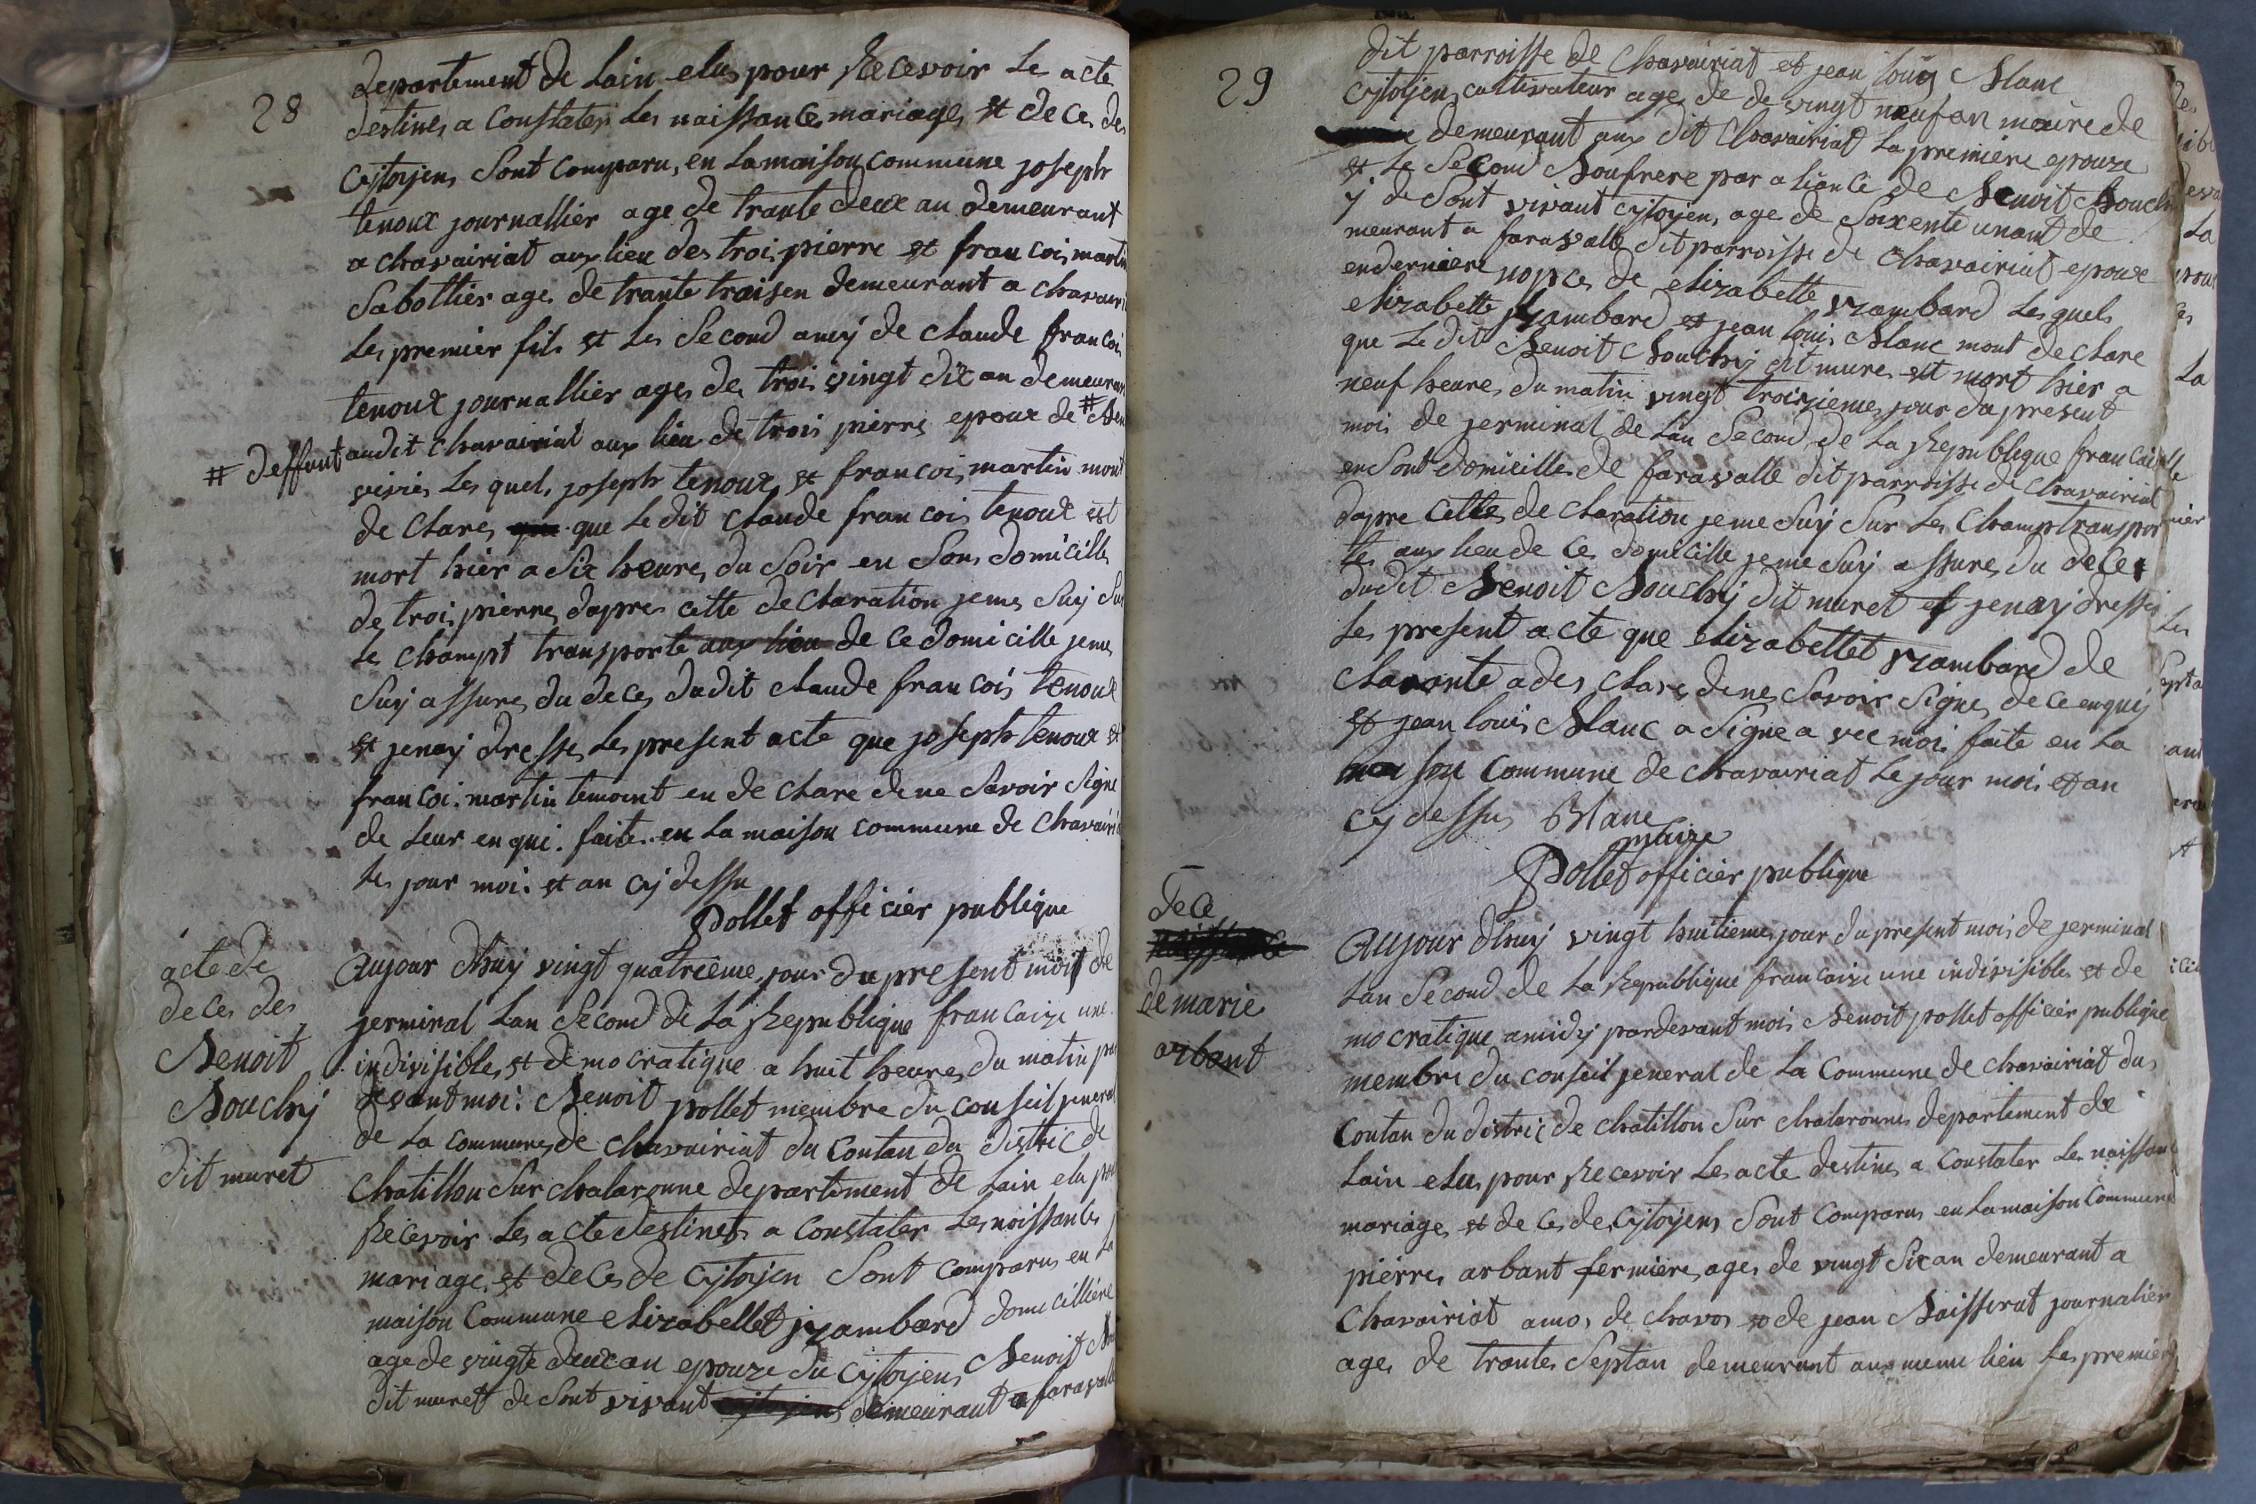 28
departement de Lain elus pour Recevoir Les acte
destines a Constater Les naissances mariages et de ces des
Cytoyens Sont Comparu, en La maison Commune joseph
tenoux journallier age de trante deux an demeurant
a chavairiat aux lieu des trois pierre et francois martin
Sabottier ages de trante trois en demeurant a chavairi
Les premier fils et Les Second amy de claude francois
tenoux journallier ages de trois vingt dix an demeuran
# deffunt
audit chavairiat aux lieu de trois pierres epoux de #
Les quels joseph tenoux et francois martin mont
de Clares que Le dit claude francois tenoux est
mort hier a Six heures du Soir en Sons domicille
de trois pierres dapres cette declaration jemes Suy Sur
Le champt transporte aux lieu de ce domicille jemes
Suy assures du deces dudit claude francois tenoux
et jenay dresses Les present acte que joseph tenoux et
francois martin temoint en de clare dene Savoir Signe
de Leur enqui. faites en La maison commune de Chavairia
Les jour mois et an cy dessu
Pollet officier publique
acte de
deces des
Benoit
Bouchy
dit muret
Aujour dhuy vingt quatrieme jour du present mois de
jerminal Lan Second de La Republique francaize une
indivisibles et democratique a huit heures du matin par
devant moi. Benoit pollet membre du conseil jeneral
de La communes de chavairiat du Contan du distric de
Chatillon Sur chalaronne departement de Lain elu pour
Recevoir Les acte destinets a Constater Les noissantes
mariages et deces de Cytoyen Sont Comparus en La
maison Commune elizabellet jzambard domicilliere
age de vingte deux an epouze du Cytoyens Benoit
dit murett de Sont vivant demeurant a faravalle
29
dit parroisse de Chavairiat et jean louis Blanc
Cytoyens cultivateur ages de de vingt neuf an maire de
demeurant aux dit Chavairiat La premiere epouze
et Le Second Boufrere par aliance de Benoit Bouchy
y de Sont vivant Cytoyens age de Soixente unant de
meurant a faravalle dit parroisse de Chavairiat epoux
enderniere nopces de elizabette yzambard Les quels
elizabette yzambard et jean louis Blanc mont de clare
que Le dit Benoit Bouchy dit mures est mort hier a
neuf heures du matin vingt troizieme jour du present
mois de jerminal de Lan Second de La Republique francaize
en Sont domicilles de faravalle dit parroisse de Chavairiat
dapre Cettes declaration jeme Suy Sur Les Champ transpor
tes aux lieu de Ces domicille jeme Suy assures du deces
dudit Benoit Bouchy dit muret et jenay dresses
Les present acte que elizabettet yzambard de
Clarante a des clares dene Savoir Signes de ce enquis
et jean louis Blanc a Signe a vec moi. faite en La
maison Commune de chavairiat Le jour mois et an
cy dessus Blanc
maire
Pollet officier publique
dece
de marie
arbant
Aujour dhuy vingt huitieme jour du present mois de jerminal
Lan Second de La Republique francaize une indivisibles et de
mocratique amidy pardevant mois Benoit pollet officier publique
membre du conseil jeneral de La Commune de chavairiat du
Contan du distric de chatillon Sur chalaronne departement de
Lain elus pour Recevoir Les acte destines a Constater Les naissance
mariages et de ces de Cytoyens Sont Comparus en La maison Commune
pierres arbant fermieres ages de vingt Six an demeurant a
Chavairiat amas de chavos et de jean Baisserat journalier
ages de trantes Septan demeurant aux meme lieu Les premier